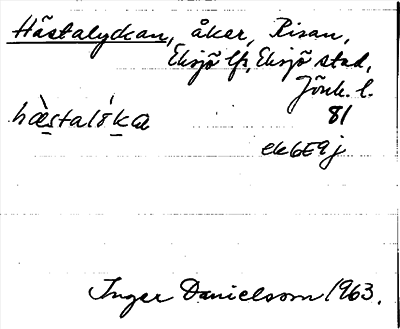 Hästalyckan, åker, Risan,
Eksjö lfs, Eksjö stad,
Jönk. l.
hæ̀stalỏ́ka 81
ek6E9j
Inger Danielsson 1963.